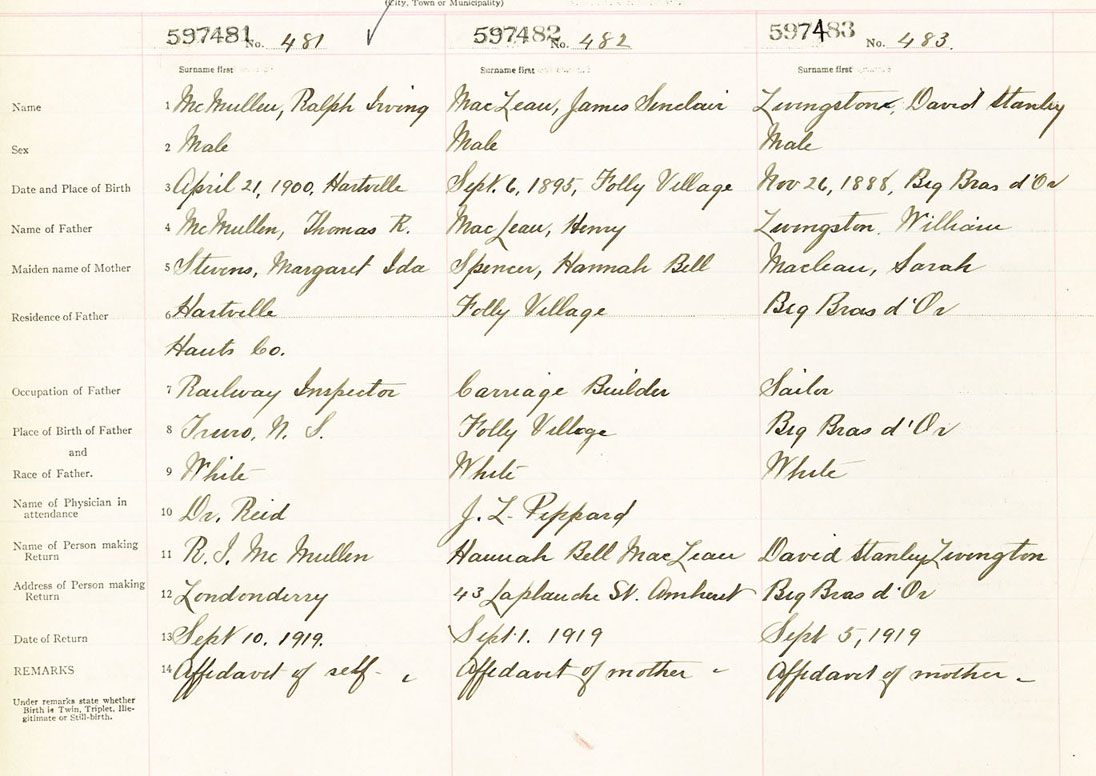 (City, Town or Municipality)
597481 No. 481 597482 No. 482 597483 No. 483.
Surname first Surname first Surname first
Name 1 McMullen, Ralph Irving MacLean, James Sinclair Livingstone, David Stanley
Sex 2 Male Male Male
Date and Place of Birth 3 April 21, 1900, Hartville Sept. 6, 1895, Folly Village Nov 26, 1888, Big Bras d'Or
Name of Father 4 McMullen, Thomas R. MacLean, Henry Livingston, William
Maiden name of Mother 5 Stevens, Margaret Ida Spencer, Hannah Bell Maclean, Sarah
Residence of Father 6 Hartville Folly Village Big Bras d'Or
Hants Co.
Occupation of Father 7 Railway Inspector Carriage Builder Sailor
Place of Birth of Father 8 Truro, N. S. Folly Village Big Bras d'Or
and
Race of Father. 9 White White White
Name of Physician in
attendance 10 Dr. Reid J. L. Peppard
Name of Person making
Return 11 R. I. McMullen Hannah Bell MacLean David Stanley Livington
Address of Person making
Return 12 Londonderry 43 Laplanche St. Amherst Big Bras d'Or
Date of Return 13 Sept 10. 1919. Sept. 1. 1919 Sept 5, 1919
REMARKS 14 Affidavit of self- Affidavit of mother - Affidavit of mother -
Under remarks state whether
Birth is Twin, Triplet, Ille-
gitimate or Still-birth.